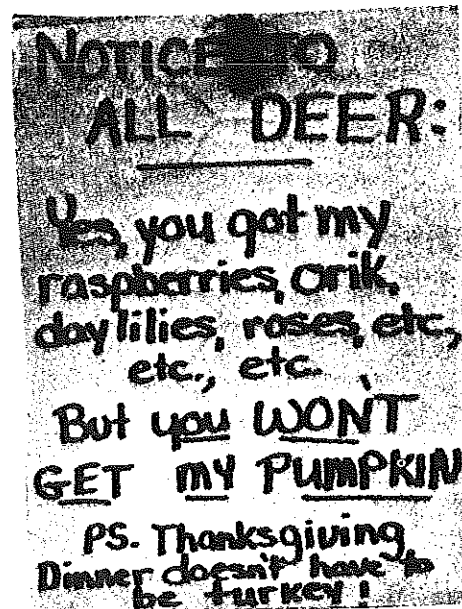 NOTICE TO
ALL DEER:
Yes, you got my
raspberries, orik,
day lilies, roses, etc,
etc., etc.
But you WON'T
GET MY PUMPKIN
PS. Thanksgiving
Dinner doesn't have to
be turkey!